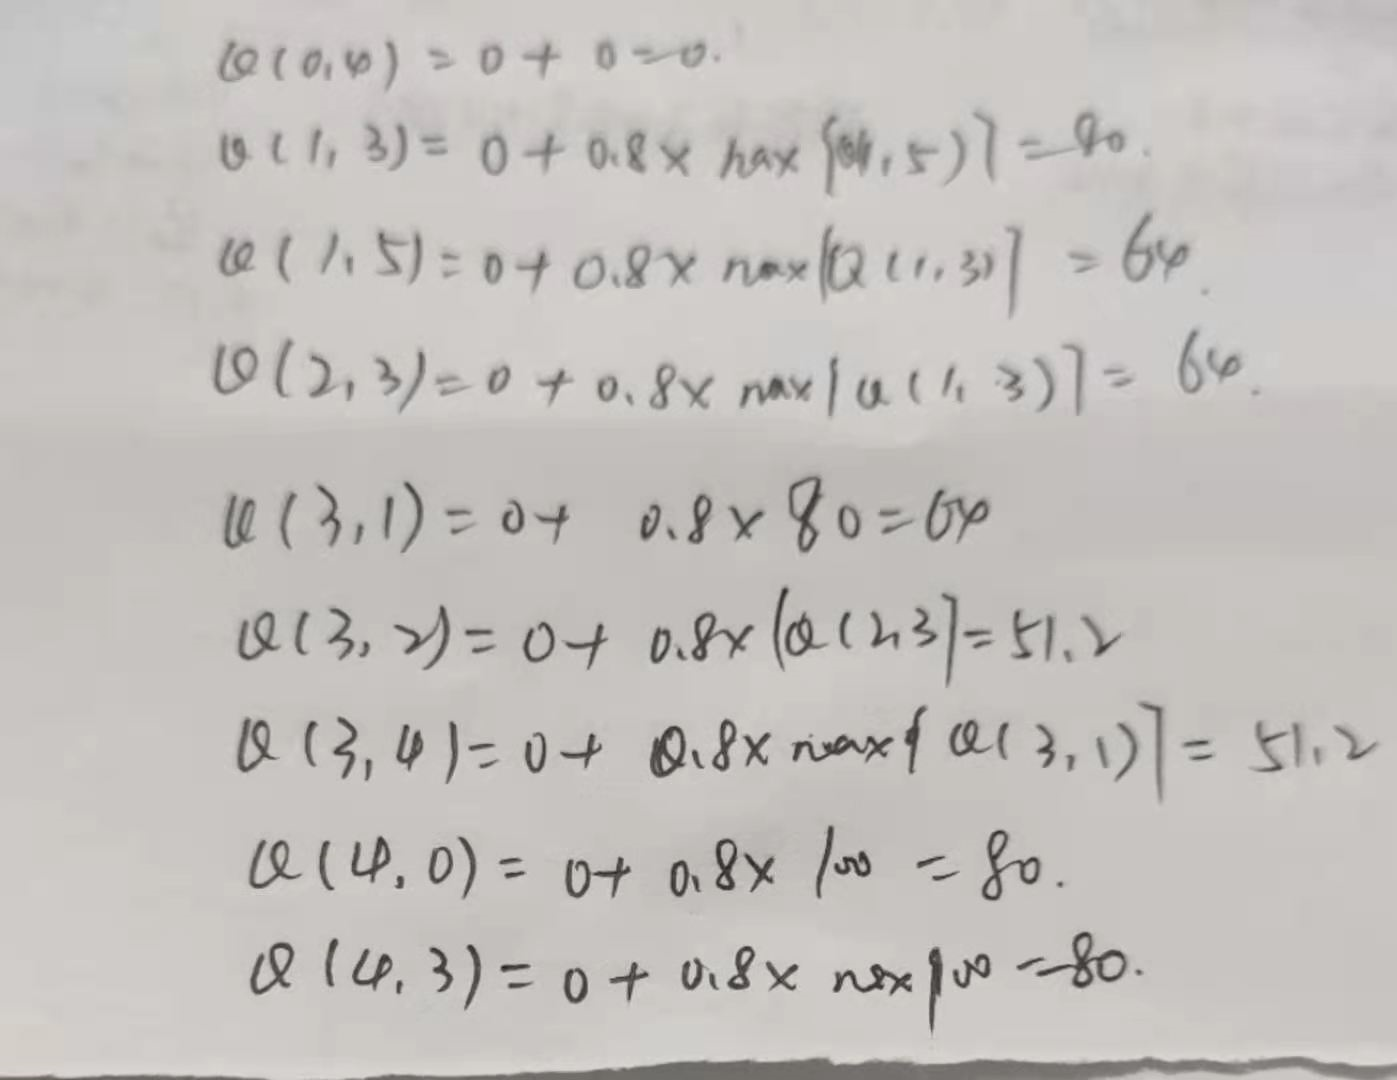 Q(0,4) = 0 + 0 = 0.
Q(1,3) = 0 + 0.8 × max [Q(1,5)] = 80.
Q(1,5) = 0 + 0.8 × max [Q(1,3)] = 64.
Q(2,3) = 0 + 0.8 × max [Q(1,3)] = 64.
Q(3,1) = 0 + 0.8 × 80 = 64
Q(3,2) = 0 + 0.8 × [Q(2,3] = 51.2
Q(3,4) = 0 + 0.8 × max [Q(3,1)] = 51.2
Q(4,0) = 0 + 0.8 × 100 = 80.
Q(4,3) = 0 + 0.8 × max 100 = 80.